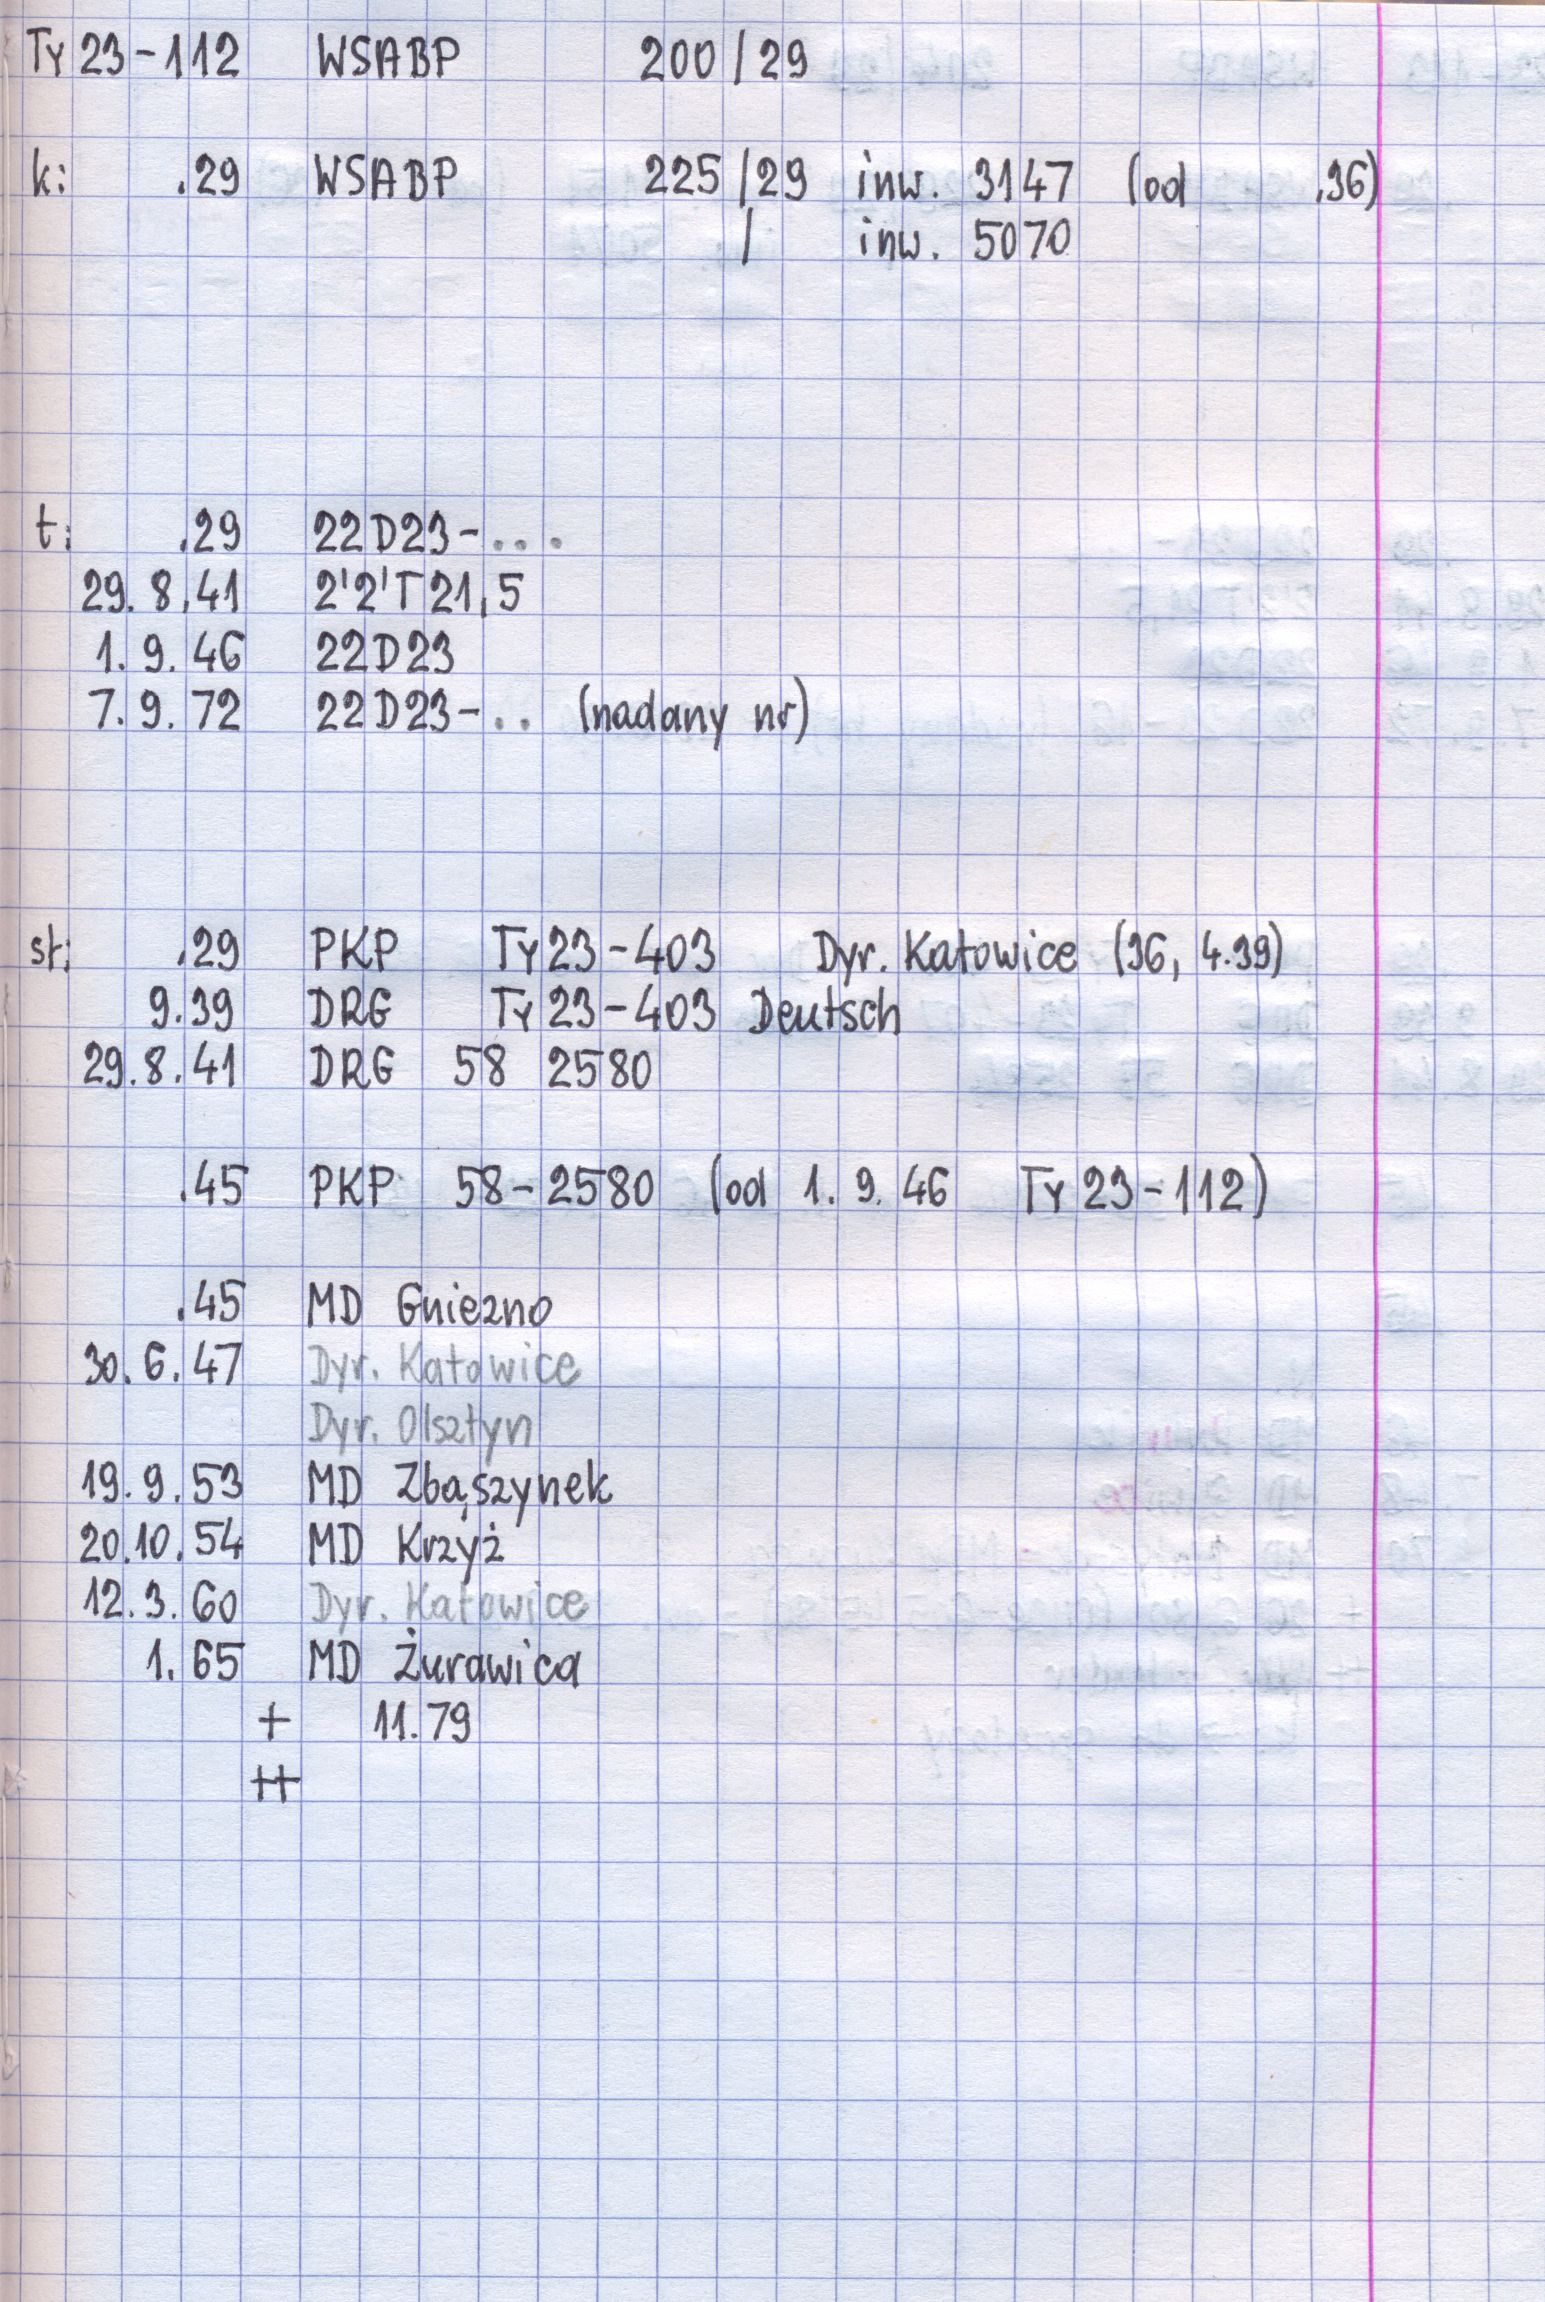 Ty 23-112 WSABP 200/29
k: .29 WSABP 225/29 inw. 3147 (od .36)
/ inw. 5070
t: .29 22D23-...
29.8.41 2'2'T21,5
1.9.46 22D23
7.9.72 22D23-.. (nadany nr)
st: .29 PKP Ty23-403 Dyr. Katowice (36, 4.39)
9.39 DRG Ty23-403 Deutsch
29.8.41 DRG 58 2580
.45 PKP 58-2580 (od 1.9.46 Ty23-112)
.45 MD Gniezno
30.6.47 Dyr. Katowice
Dyr. Olsztyn
19.9.53 MD Zbąszynek
20.10.54 MD Krzyż
12.3.60 Dyr. Katowice
1.65 MD Żurawica
+ 11.79
++